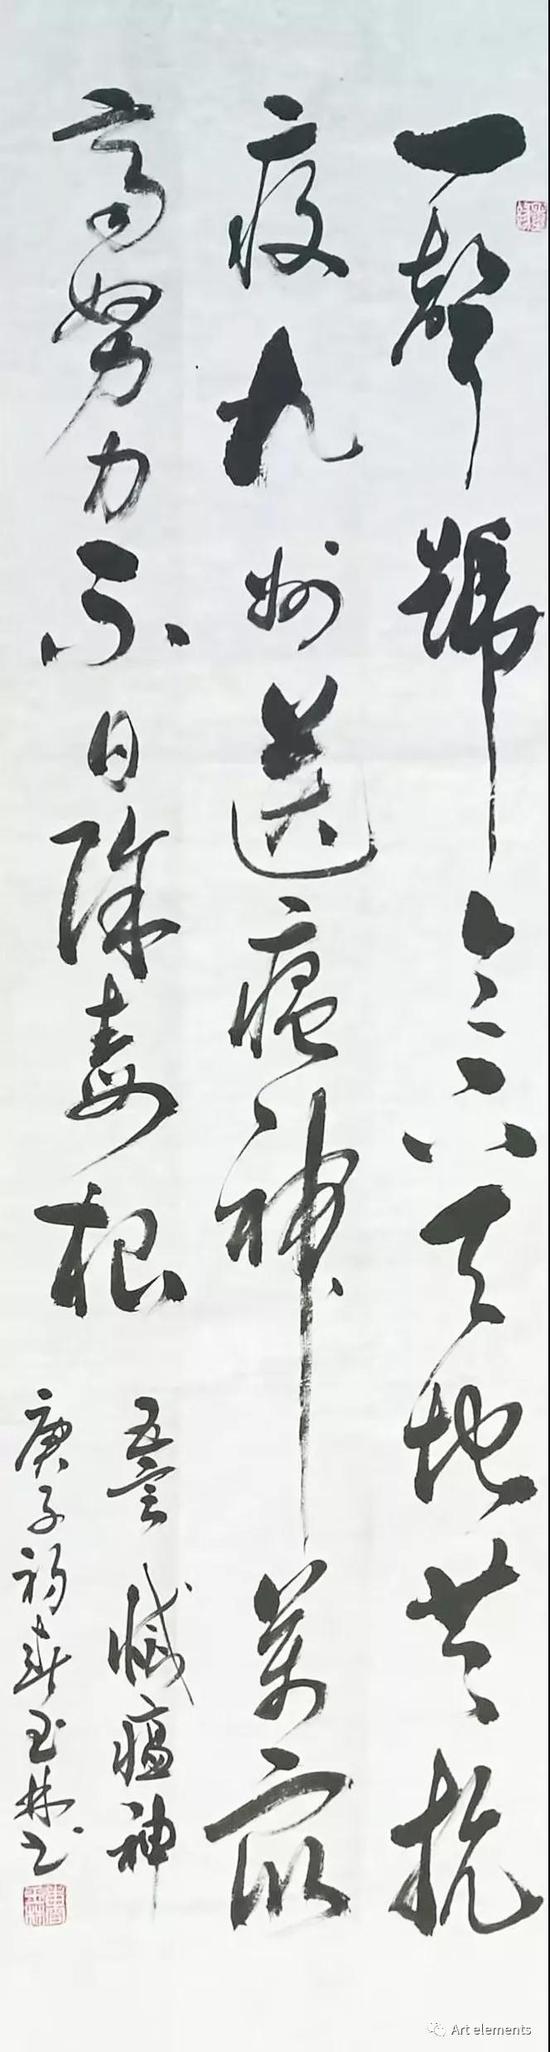 一聲號令下天地共抗
疫九州送瘟神萬眾
齊努力不日除毒根
五言 滅瘟神
庚子初春玉林书
Art elements